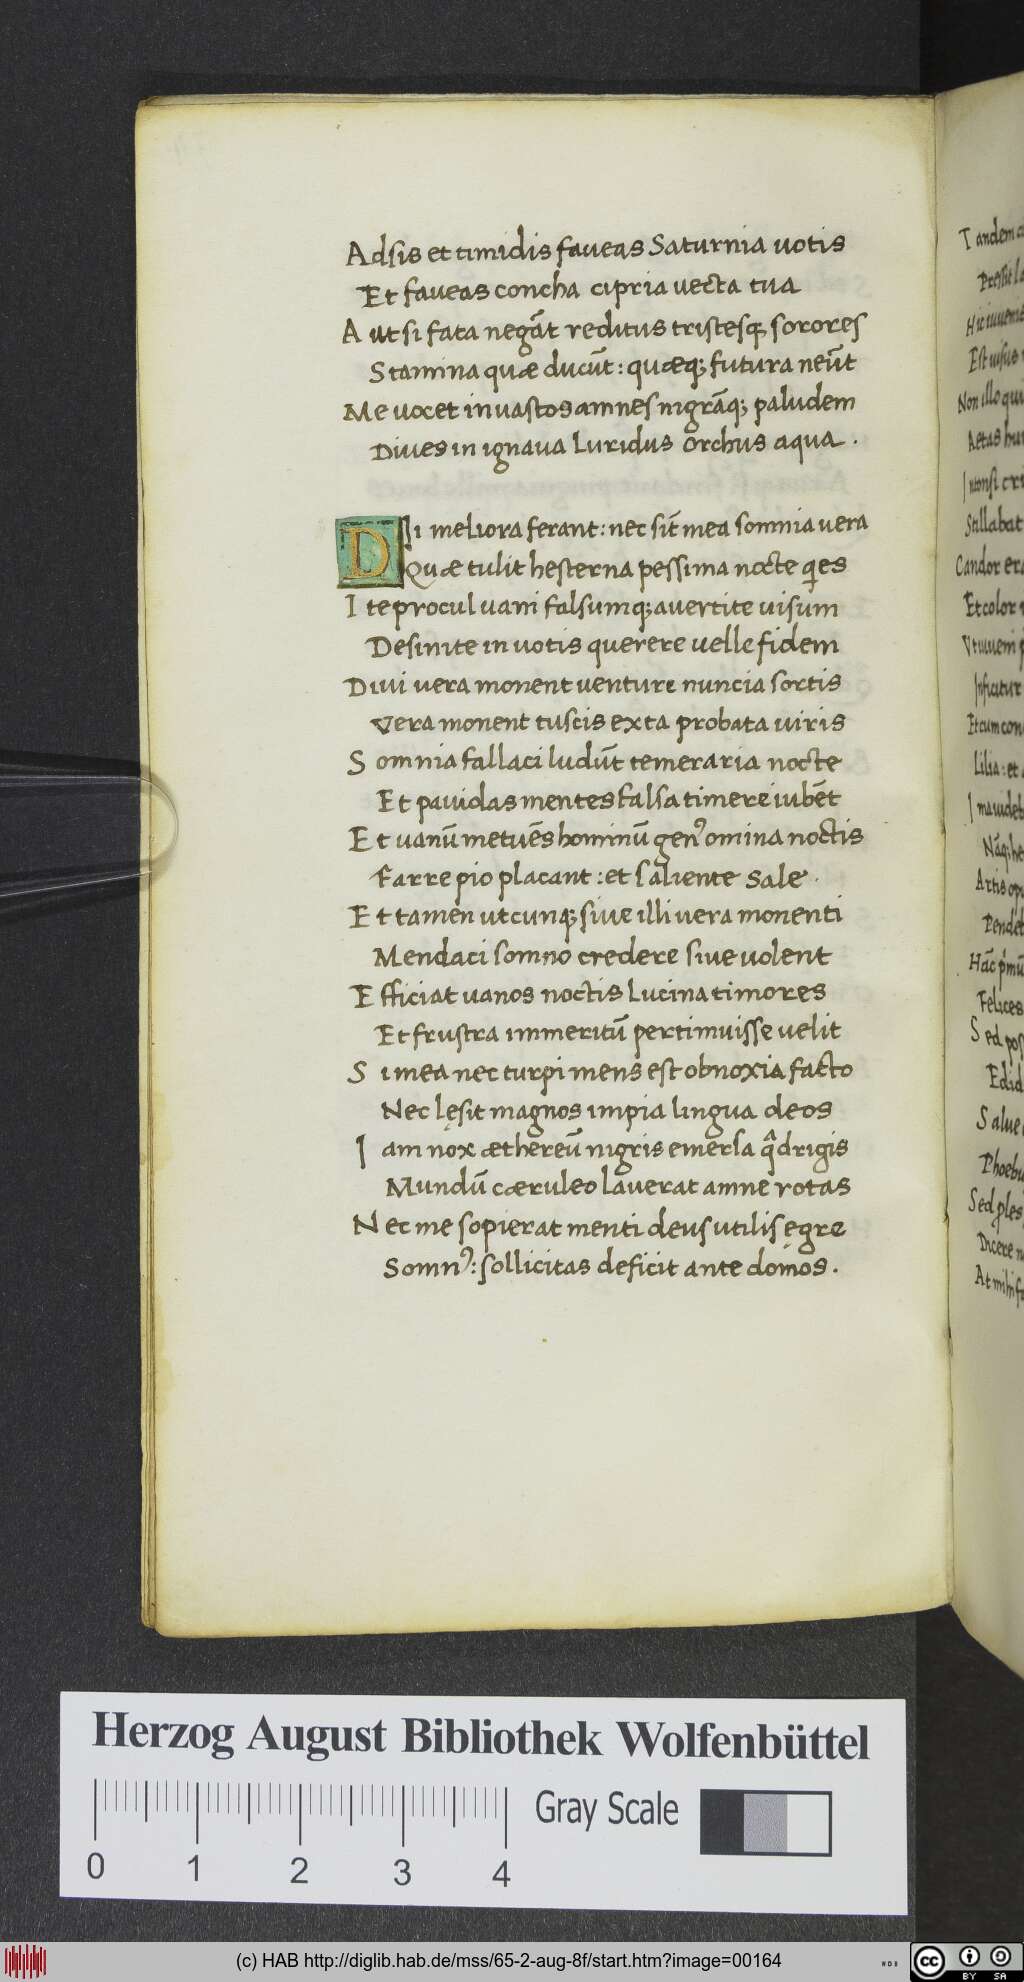 Adsis et timidis faveas Saturnia uotis
Et faveas concha cipria uecta tua
Aut si fata negāt reditus tristesq; sorores
Stamina quæ ducūt: quæq; futura neūt
Me uocet in vastos amnes nigrāq; paludem
Dives in ignava Luridus Orchus aqua.
Di meliora ferant: nec sīt mea somnia vera
Quæ tulit hesterna pessima nocte qies
Ite procul uani falsumq; avertite uisum
Desinite in uotis querere uelle fidem
Diui vera monent venture nuncia sortis
Vera monent tuscis exta probata uiris
Somnia fallaci ludūt temeraria nocte
Et pauidas mentes falsa timere iubēt
Et uanū metuēs hominū gen9 omina noctis
Farre pio placant: et saliente Sale.
Et tamen ut cunq; siue illi vera monenti
Mendaci somno credere siue uolent
Efficiat uanos noctis Lucina timores
Et frustra immeritū pertimuisse uelit
Si mea nec turpi mens est obnoxia facto
Nec lęsit magnos impia lingua deos
Iam nox æthereū nigris emersa qadrigis
Mundū cæruleo laverat amne rotas
Nec me sopierat menti deus utilis egre
Somn9: sollicitas deficit ante domos.
Tandem
Non illo qui
Candor era
Et color
Inficitur
Et cum con
Lilia: et
Artis op
Pendet
Felices
Sed pos
Edid
Salue
Phoebu
Dicere n
At mihi
Herzog August Bibliothek Wolfenbüttel
Gray Scale
0 1 2 3 4
(c) HAB http://diglib.hab.de/mss/65-2-aug-8f/start.htm?image=00164
cc BY SA